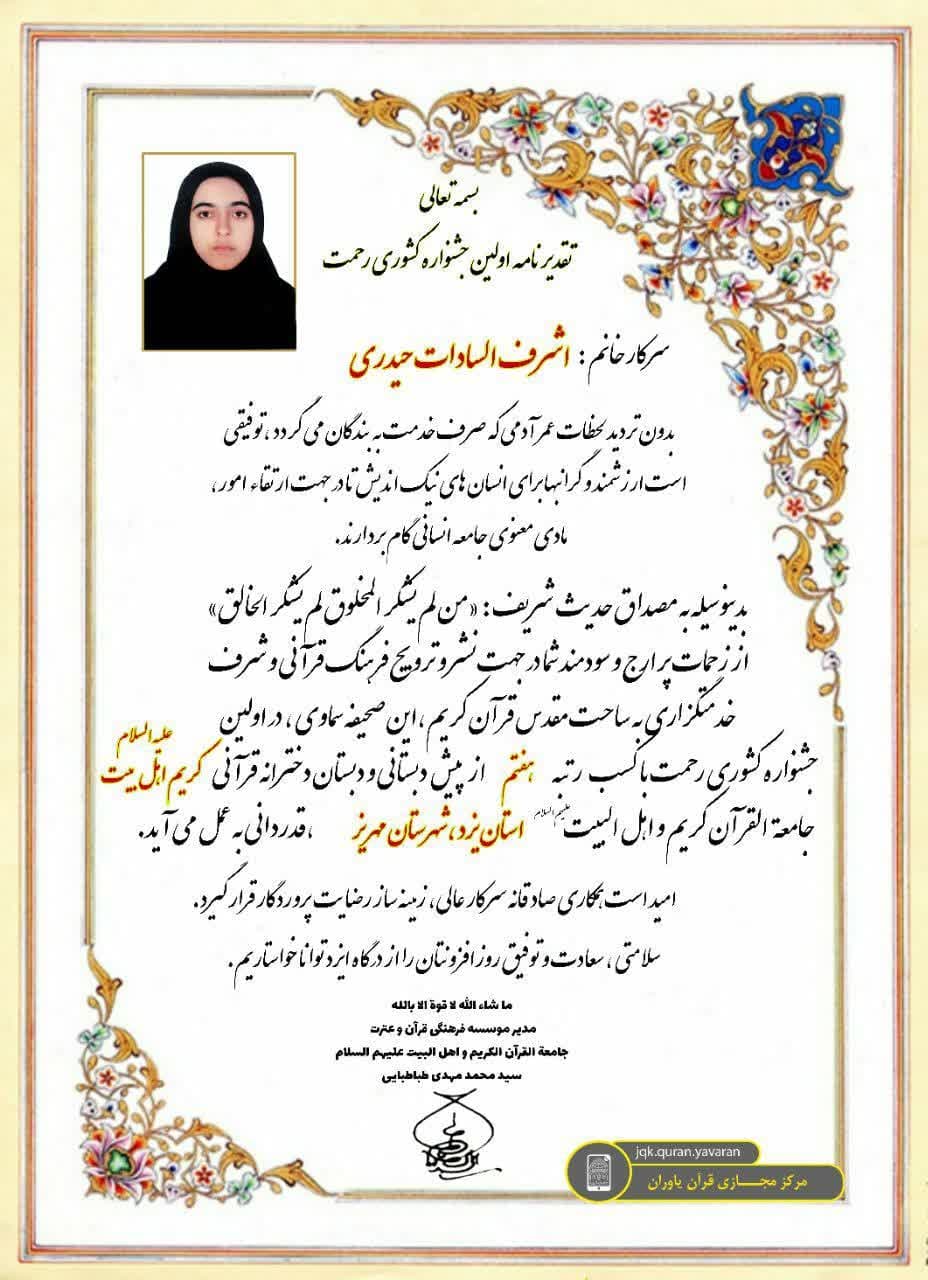 بسمه تعالی
تقدیرنامه اولین جشنواره کشوری رحمت
سرکار خانم : اشرف السادات حیدری
بدون تردید لحظات عمر آدمی که صرف خدمت به بندگان می گردد ، توفیقی
است ارزشمند و گرانبها برای انسان های نیک اندیش تا در جهت ارتقاء امور ،
مادی معنوی جامعه انسانی گام بردارند.
بدینوسیله به مصداق حدیث شریف : «من لم یشکر المخلوق لم یشکر الخالق»
از زحمات پر ارج و سودمند شما در جهت نشر و ترویج فرهنگ قرآنی و شرف
خدمتگزاری به ساحت مقدس قرآن کریم ، این صحیفه سماوی ، در اولین
جشنواره کشوری رحمت با کسب رتبه هفتم از پیش دبستانی و دبستان دخترانه قرآنی کریم اهل بیت علیه السلام
جامعة القرآن کریم و اهل البیت علیهم السلام استان یزد ، شهرستان مهریز ، قدردانی به عمل می آید.
امید است همکاری صادقانه سرکار عالی ، زمینه ساز رضایت پروردگار قرار گیرد.
سلامتی ، سعادت و توفیق روز افزونتان را از درگاه ایزد توانا خواستاریم.
ما شاء الله لا قوة الا بالله
مدیر موسسه فرهنگی قرآن و عترت
جامعة القرآن الکریم و اهل البیت علیهم السلام
سید محمد مهدی طباطبایی
jqk.quran.yavaran
مرکز مجــازی قرآن یاوران